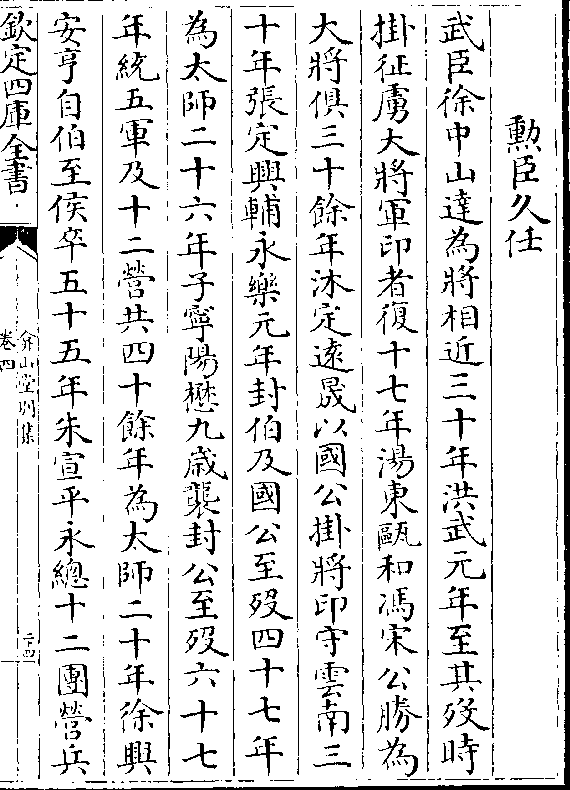 勲臣久任
武臣徐中山達為將相近三十年洪武元年至其歿時
掛征虜大將軍印者復十七年湯東甌和馮宋公勝為
大將俱三十餘年沐定逺晟以國公掛將印守雲南三
十年張定興輔永樂元年封伯及國公至歿四十七年
為太師二十六年子寧陽懋九歲襲封公至歿六十七
年統五軍及十二營共四十餘年為太師二十年徐興
安亨自伯至侯卒五十五年朱宣平永總十二團營兵
欽定四庫全書
弇山堂別集
卷四
二十四